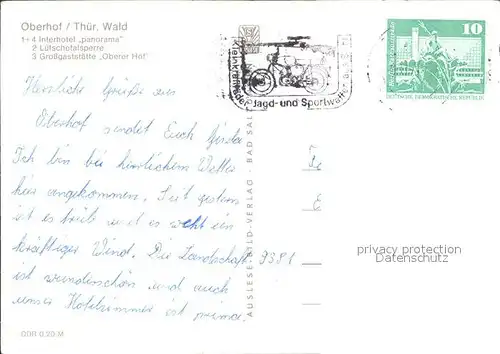 Oberhof / Thür. Wald
1+4 Interhotel „panorama"
2 Lütschetalsperre
3 Großgaststätte „Oberer Hof"
Herzliche Grüße aus
Oberhof sendet Euch Gerda
Ich bin bei herrlichem Wetter
hier angekommen. Seit gestern
ist es trüb und es weht ein
kräftiger Wind. Die Landschaft
ist wunderschön und auch
unser Hotelzimmer ist prima.
DDR 0,20 M
AUSLESE-BILD-VERLAG · BAD SAL
Kleinkrafträder Jagd- und Sportwaffen
10
DEUTSCHE DEMOKRATISCHE REPUBLIK
9381
privacy protection
Datenschutz